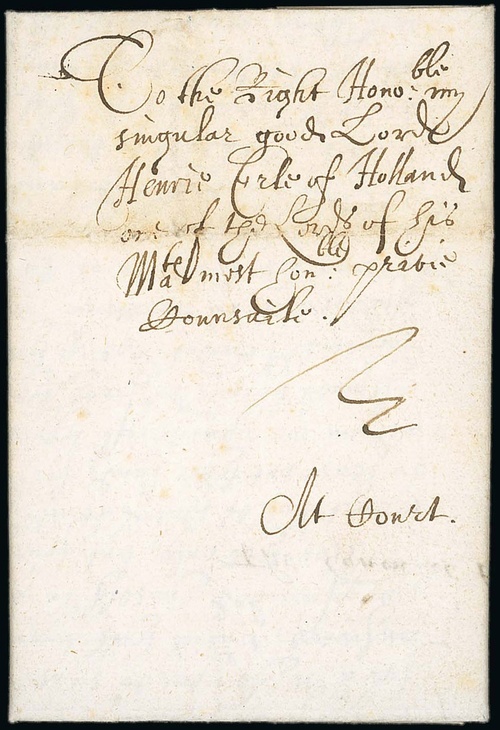 To the Right Hono:ble my
singular good Lord
Henrie Erle of Holland
one of the Lords of his
Matea most hon:ble privie
Counsaile.
At Court.